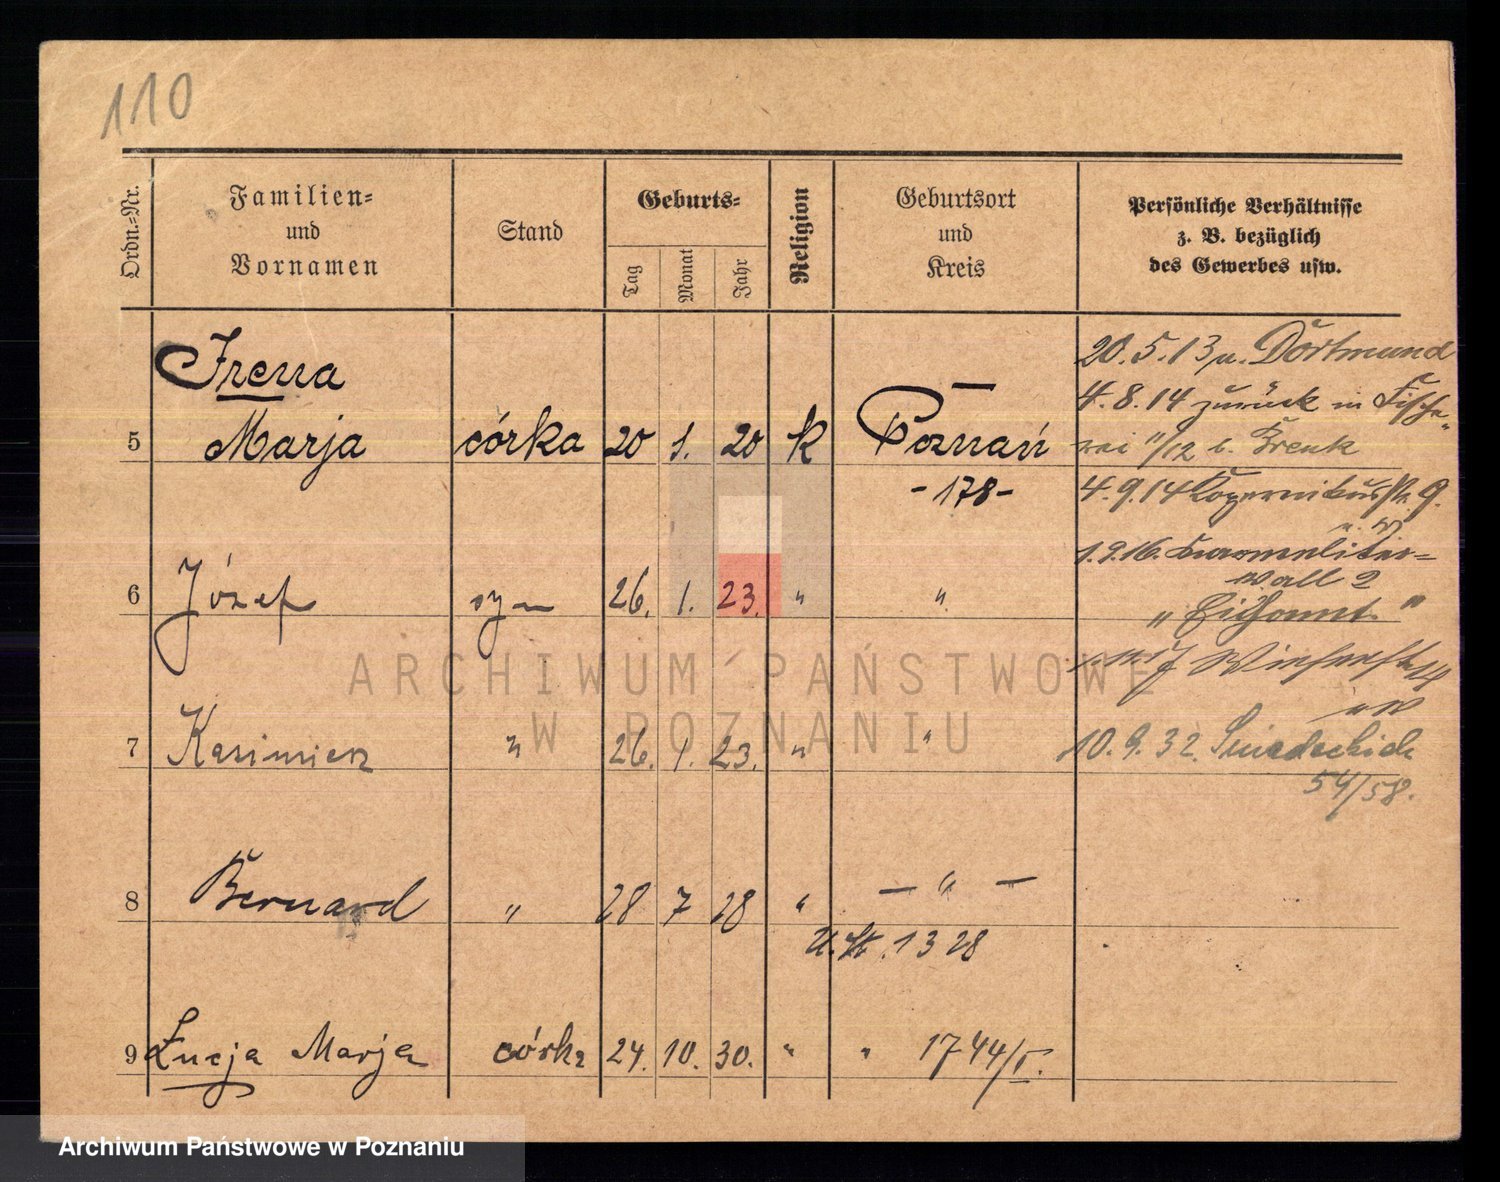 110
Ordn.=Nr.
Familien=
und
Vornamen
Stand
Geburts=
Tag
Monat
Jahr
Religion
Geburtsort
und
Kreis
Persönliche Verhältnisse
z. B. bezüglich
des Gewerbes usw.
Irena
5 Marja córka 20 1. 20 k Poznań
-178-
6 Józef syn 26. 1. 23. " "
7 Kazimierz " 26. 1. 23. " "
8 Bernard " 28 7 28 " — " —
U. St. 1328
9 Łucja Marja córka 24. 10. 30. " " 1744/V.
20.5.13 n. Dortmund
4.8.14 zurück in Fische-
rei 11/12 b.
4.9.14 Kopernikusstr. 9.
1.9.16. Karmeliter=
wall 2
10.9.32. Śniadeckich
54/58.
ARCHIWUM PAŃSTWOWE
W POZNANIU
Archiwum Państwowe w Poznaniu